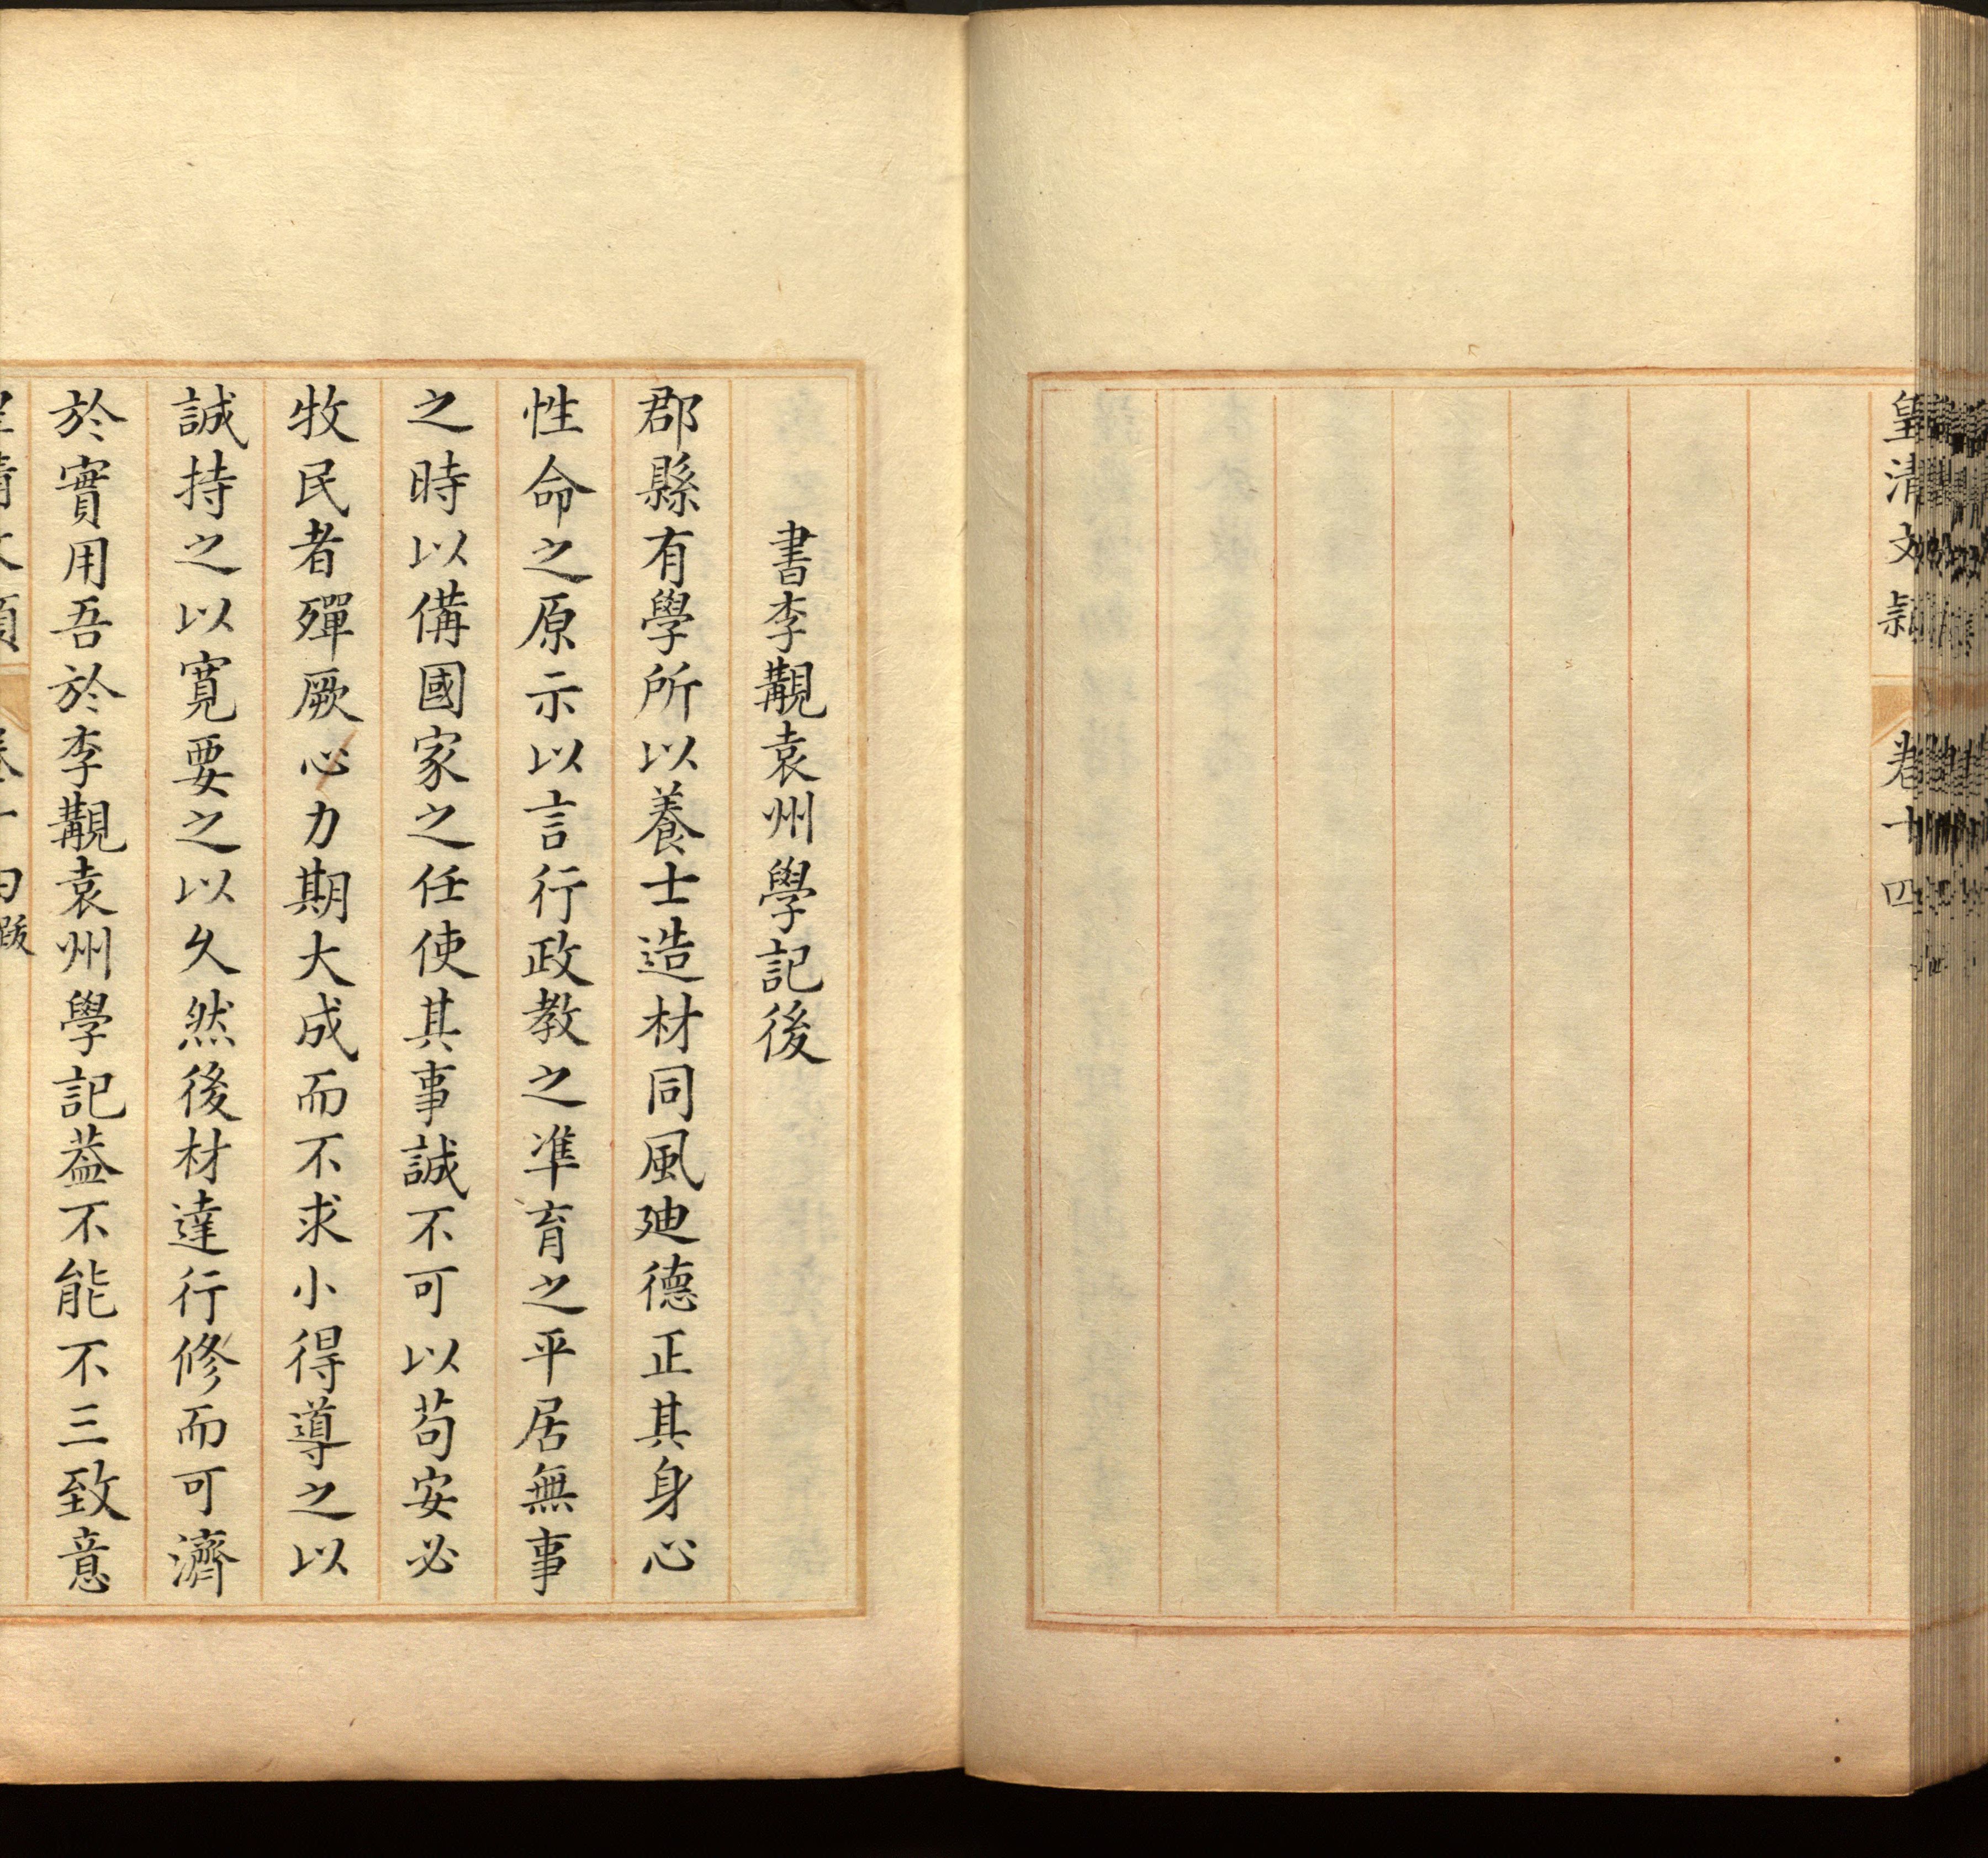 皇清文穎 卷十四
書李覯袁州學記後
郡縣有學所以養士造材同風廸德正其身心
性命之原示以言行政教之準育之平居無事
之時以備國家之任使其事誠不可以苟安必
牧民者殫厥心力期大成而不求小得導之以
誠持之以寬要之以久然後材達行修而可濟
於實用吾於李覯袁州學記葢不能不三致意